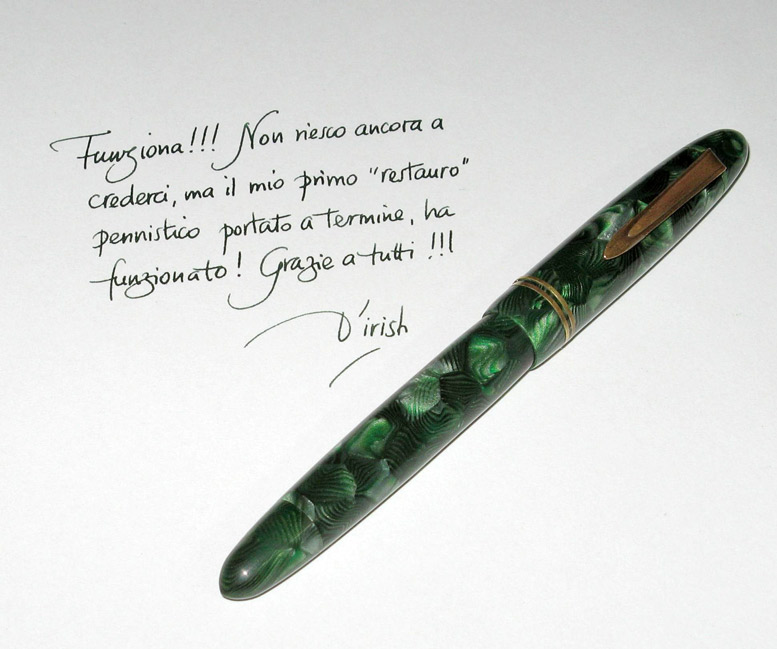 Funziona!!! Non riesco ancora a
crederci, ma il mio primo "restauro"
pennistico portato a termine, ha
funzionato! Grazie a tutti !!!
D'irish